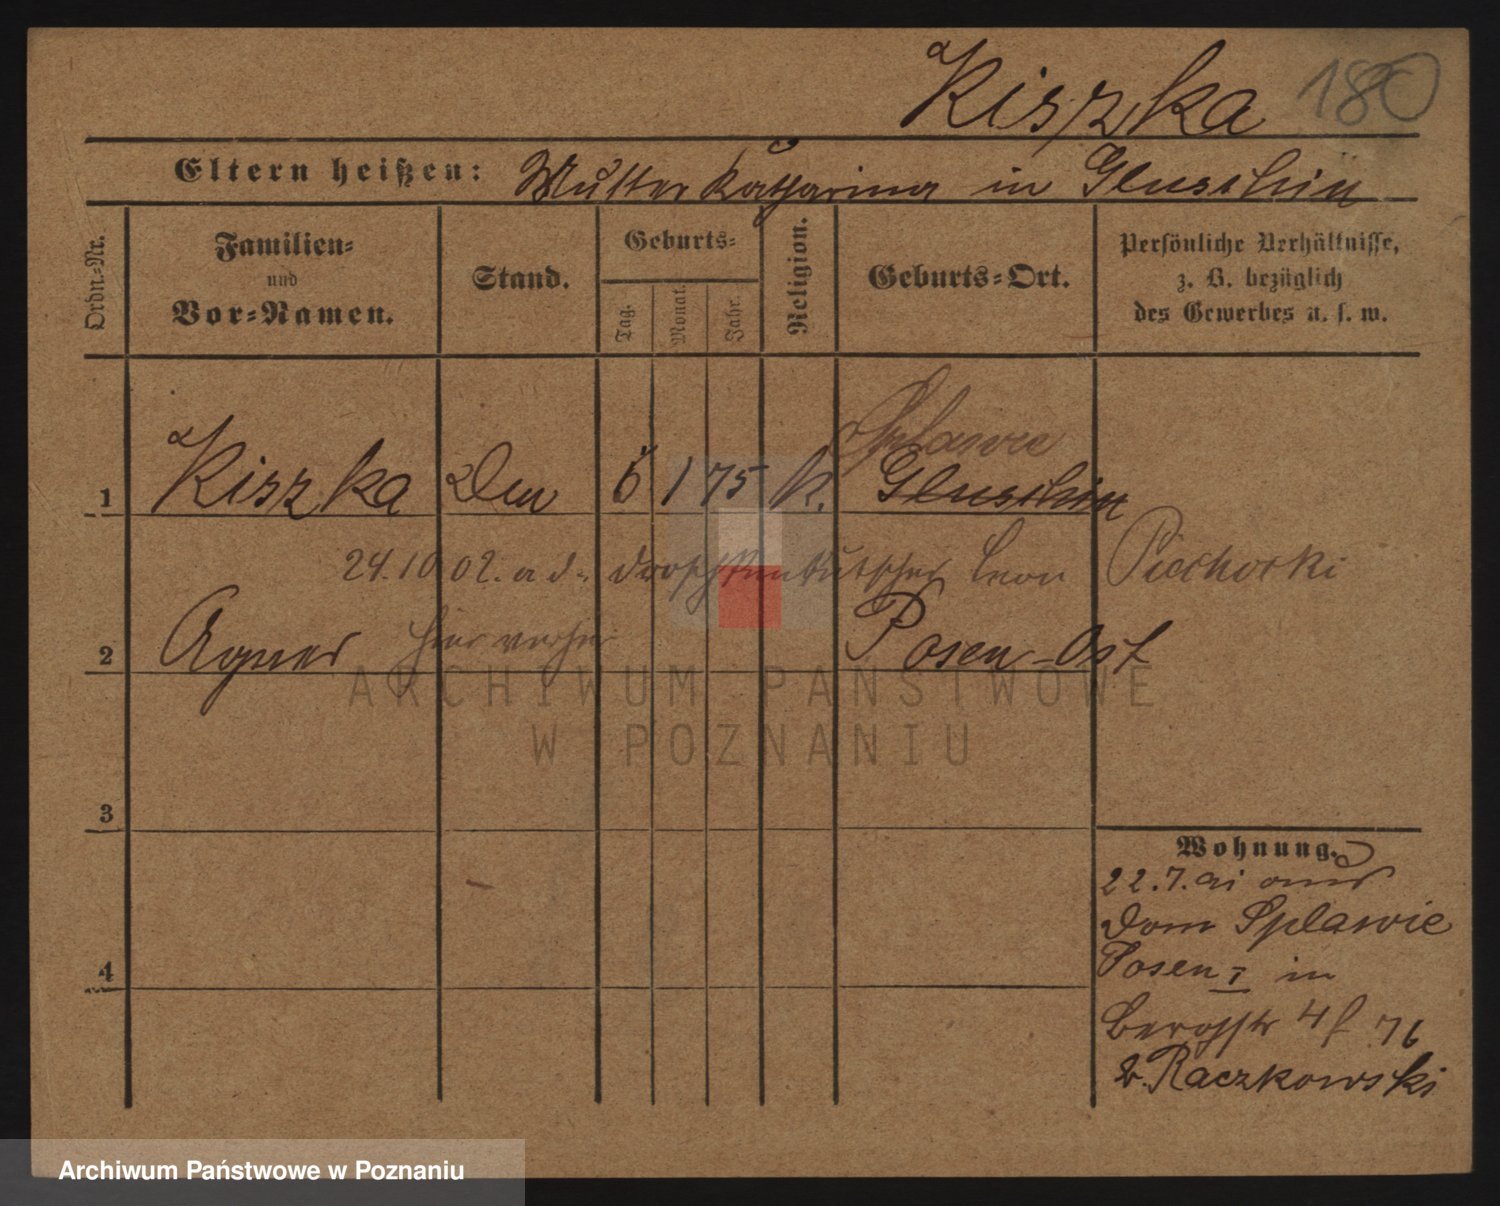 Kiszka 180
Eltern heißen: Mutter Katharina in Gluschin
Ordn-Nr.
Familien- und Vor-Namen.
Stand.
Geburts-
Tag.
Monat.
Jahr.
Religion.
Geburts-Ort.
Persönliche Verhältnisse,
z. B. bezüglich
des Gewerbes u. s. w.
Splawie
1 Kiszka 6 1 75 k. Gluschin
24.10.02. a d. Droschkenkutscher Leon Piechocki
2 Agnes hier verhei Posen-Ost
3
4
Wohnung.
22.7. aus
Dom Splawie
Posen in
Bergstr 4
b. Raczkowski
ARCHIWUM PAŃSTWOWE
W POZNANIU
Archiwum Państwowe w Poznaniu